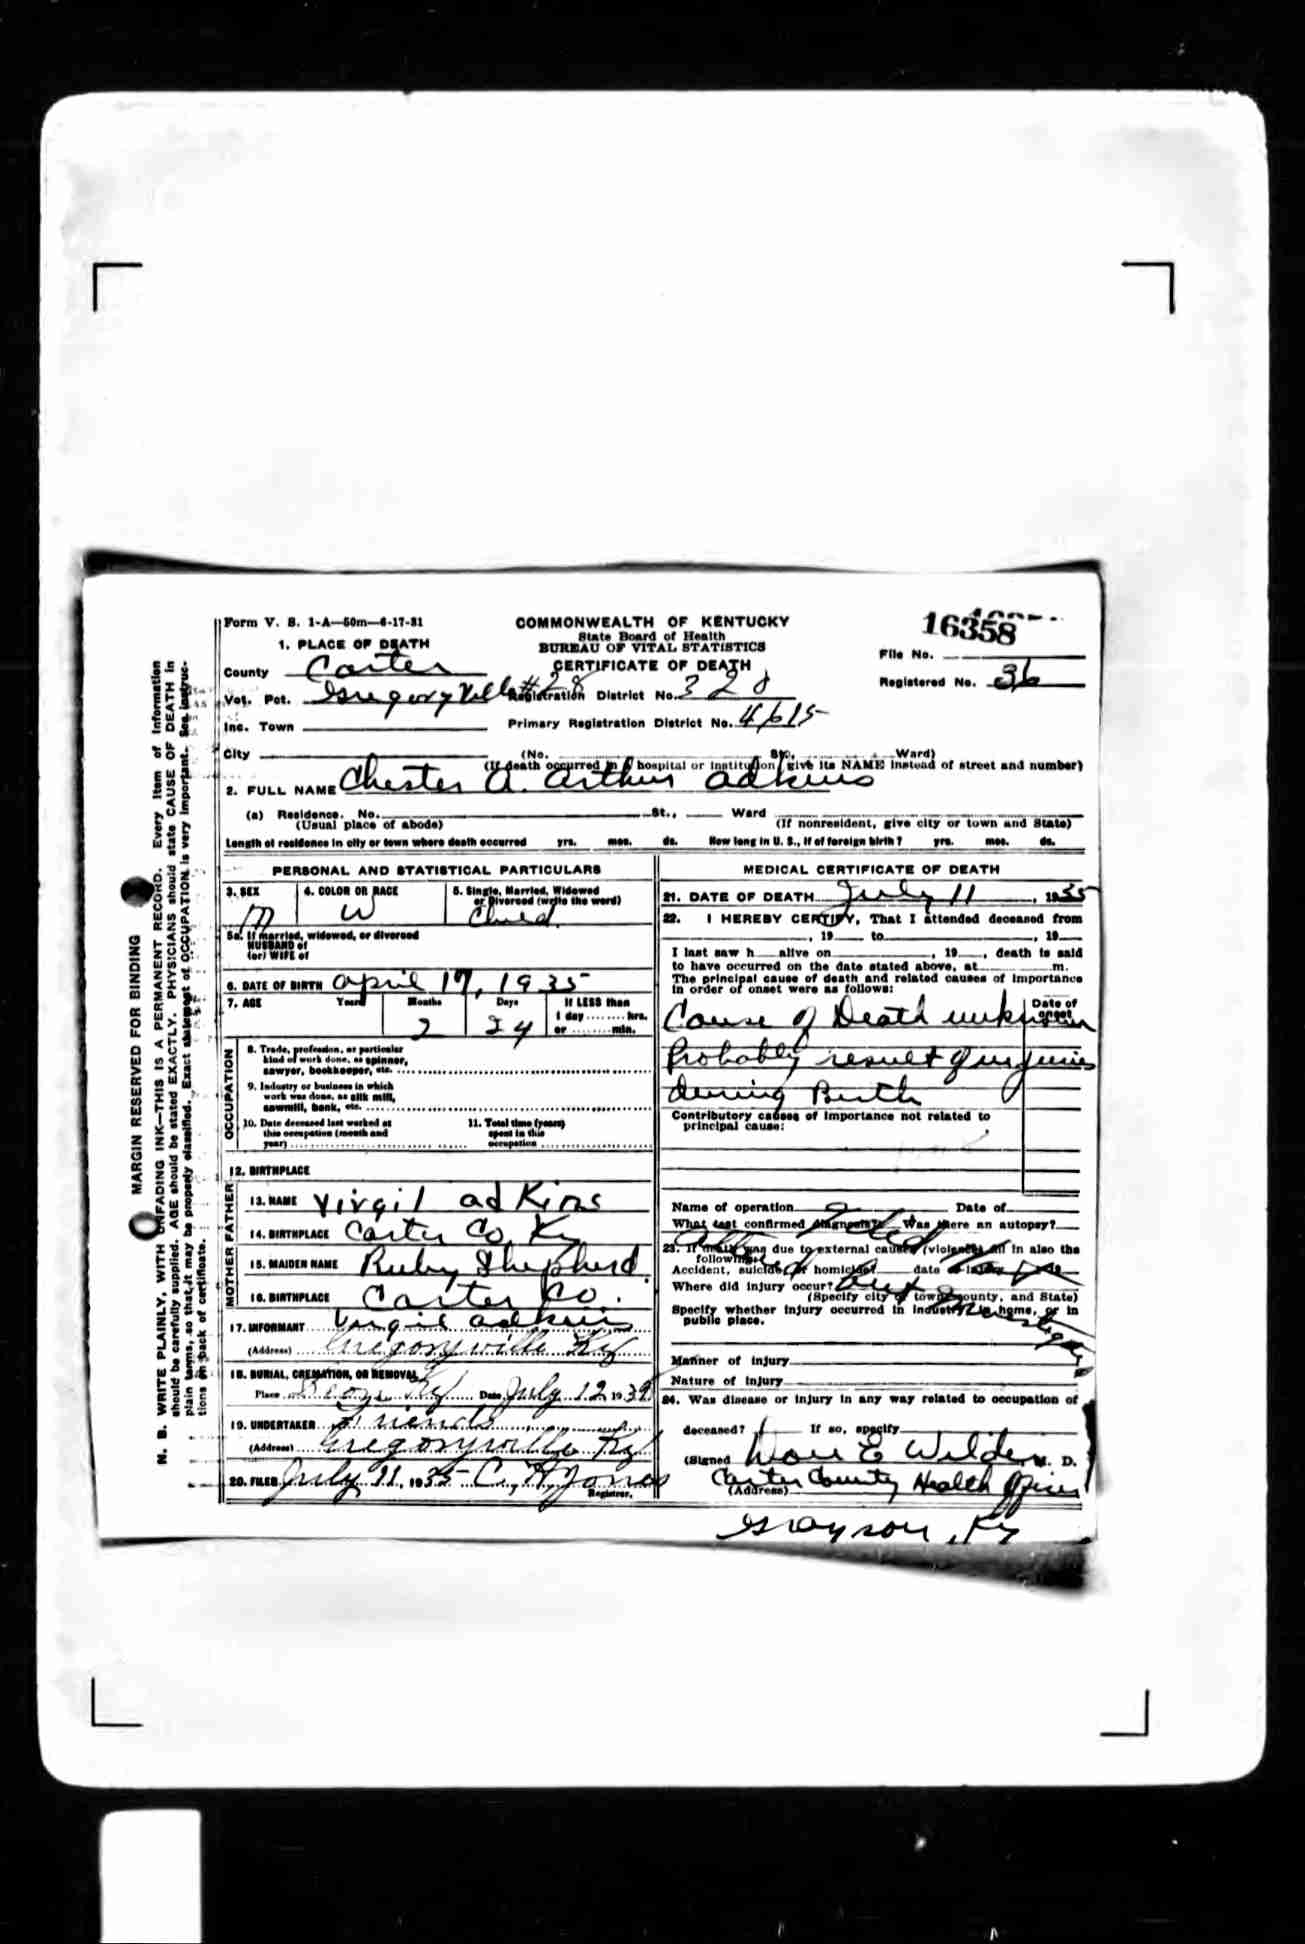 Form V. S. 1-A—50m—6-17-31
COMMONWEALTH OF KENTUCKY
State Board of Health
BUREAU OF VITAL STATISTICS
CERTIFICATE OF DEATH
16358
File No.
Registered No. 36
1. PLACE OF DEATH
County Carter
Vot. Pct. Gregoryville #28 Registration District No. 328
Inc. Town Primary Registration District No. 4615
City (No. St., Ward)
(If death occurred in a hospital or institution give its NAME instead of street and number)
2. FULL NAME Chester A. Arthur Adkins
(a) Residence. No. St., Ward
(Usual place of abode) (If nonresident, give city or town and State)
Length of residence in city or town where death occurred yrs. mos. ds. How long in U. S., if of foreign birth? yrs. mos. ds.
PERSONAL AND STATISTICAL PARTICULARS
3. SEX 4. COLOR OR RACE 5. Single, Married, Widowed
or Divorced (write the word)
M W Child
5a. If married, widowed, or divorced
HUSBAND of
(or) WIFE of
6. DATE OF BIRTH April 17, 1935
7. AGE Years Months Days If LESS than
1 day hrs.
2 24 or min.
OCCUPATION
8. Trade, profession, or particular
kind of work done, as spinner,
sawyer, bookkeeper, etc.
9. Industry or business in which
work was done, as silk mill,
sawmill, bank, etc.
10. Date deceased last worked at
this occupation (month and
year)
11. Total time (years)
spent in this
occupation
12. BIRTHPLACE
FATHER
13. NAME Virgil Adkins
14. BIRTHPLACE Carter Co Ky
MOTHER
15. MAIDEN NAME Ruby Shepherd
16. BIRTHPLACE Carter Co.
17. INFORMANT Virgil Adkins
(Address) Gregoryville Ky
18. BURIAL, CREMATION, OR REMOVAL
Place Ky Date July 12, 19
19. UNDERTAKER Friends
(Address) Gregoryville Ky
20. FILED July 11, 1935 C, Jones
Registrar.
MEDICAL CERTIFICATE OF DEATH
21. DATE OF DEATH July 11, 1935
22. I HEREBY CERTIFY, That I attended deceased from
, 19 to , 19
I last saw h alive on , 19 , death is said
to have occurred on the date stated above, at m.
The principal cause of death and related causes of importance
in order of onset were as follows:
Date of
onset
Cause of Death unknown
Probably result of injuries
during Birth
Contributory causes of importance not related to
principal cause:
Name of operation Date of
What test confirmed diagnosis? Was there an autopsy?
23. If death was due to external causes (violence) fill in also the
following:
Accident, suicide, or homicide? date of injury
Where did injury occur?
(Specify city or town, county, and State)
Specify whether injury occurred in industry, in home, or in
public place.
Manner of injury
Nature of injury
24. Was disease or injury in any way related to occupation of
deceased? If so, specify
(Signed) Don E Wilder M. D.
(Address) Carter County Health Officer
Grayson, Ky
MARGIN RESERVED FOR BINDING
N. B. WRITE PLAINLY, WITH UNFADING INK—THIS IS A PERMANENT RECORD. Every item of information
should be carefully supplied. AGE should be stated EXACTLY. PHYSICIANS should state CAUSE OF DEATH in
plain terms, so that it may be properly classified. Exact statement of OCCUPATION is very important. See instruc-
tions on back of certificate.